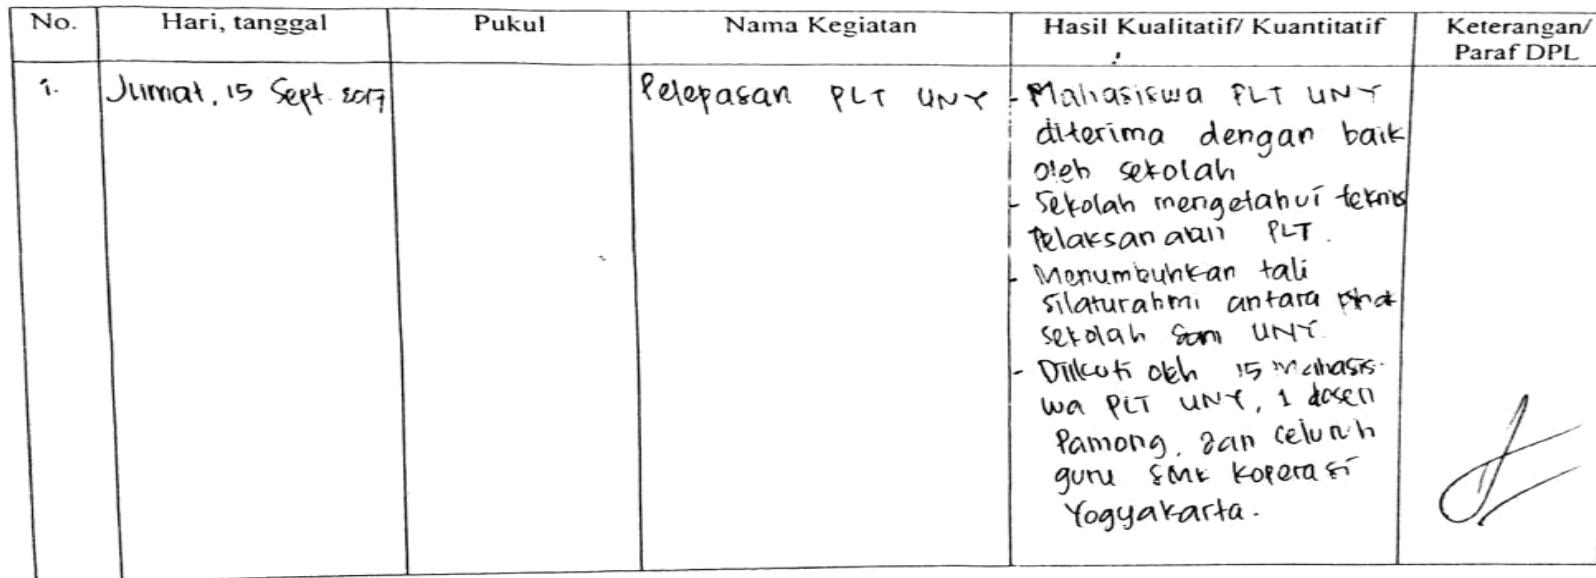 No. Hari, tanggal Pukul Nama Kegiatan Hasil Kualitatif/ Kuantitatif Keterangan/
Paraf DPL
1. Jumat, 15 Sept. 2017 Pelepasan PLT UNY - Mahasiswa PLT UNY
diterima dengan baik
oleh sekolah
- Sekolah mengetahui teknis
Pelaksanaan PLT.
- Menumbuhkan tali
silaturahmi antara pihak
sekolah dan UNY.
- Diikuti oleh 15 Mahasis-
wa PLT UNY, 1 dosen
Pamong, dan seluruh
guru SMK Koperasi
Yogyakarta.